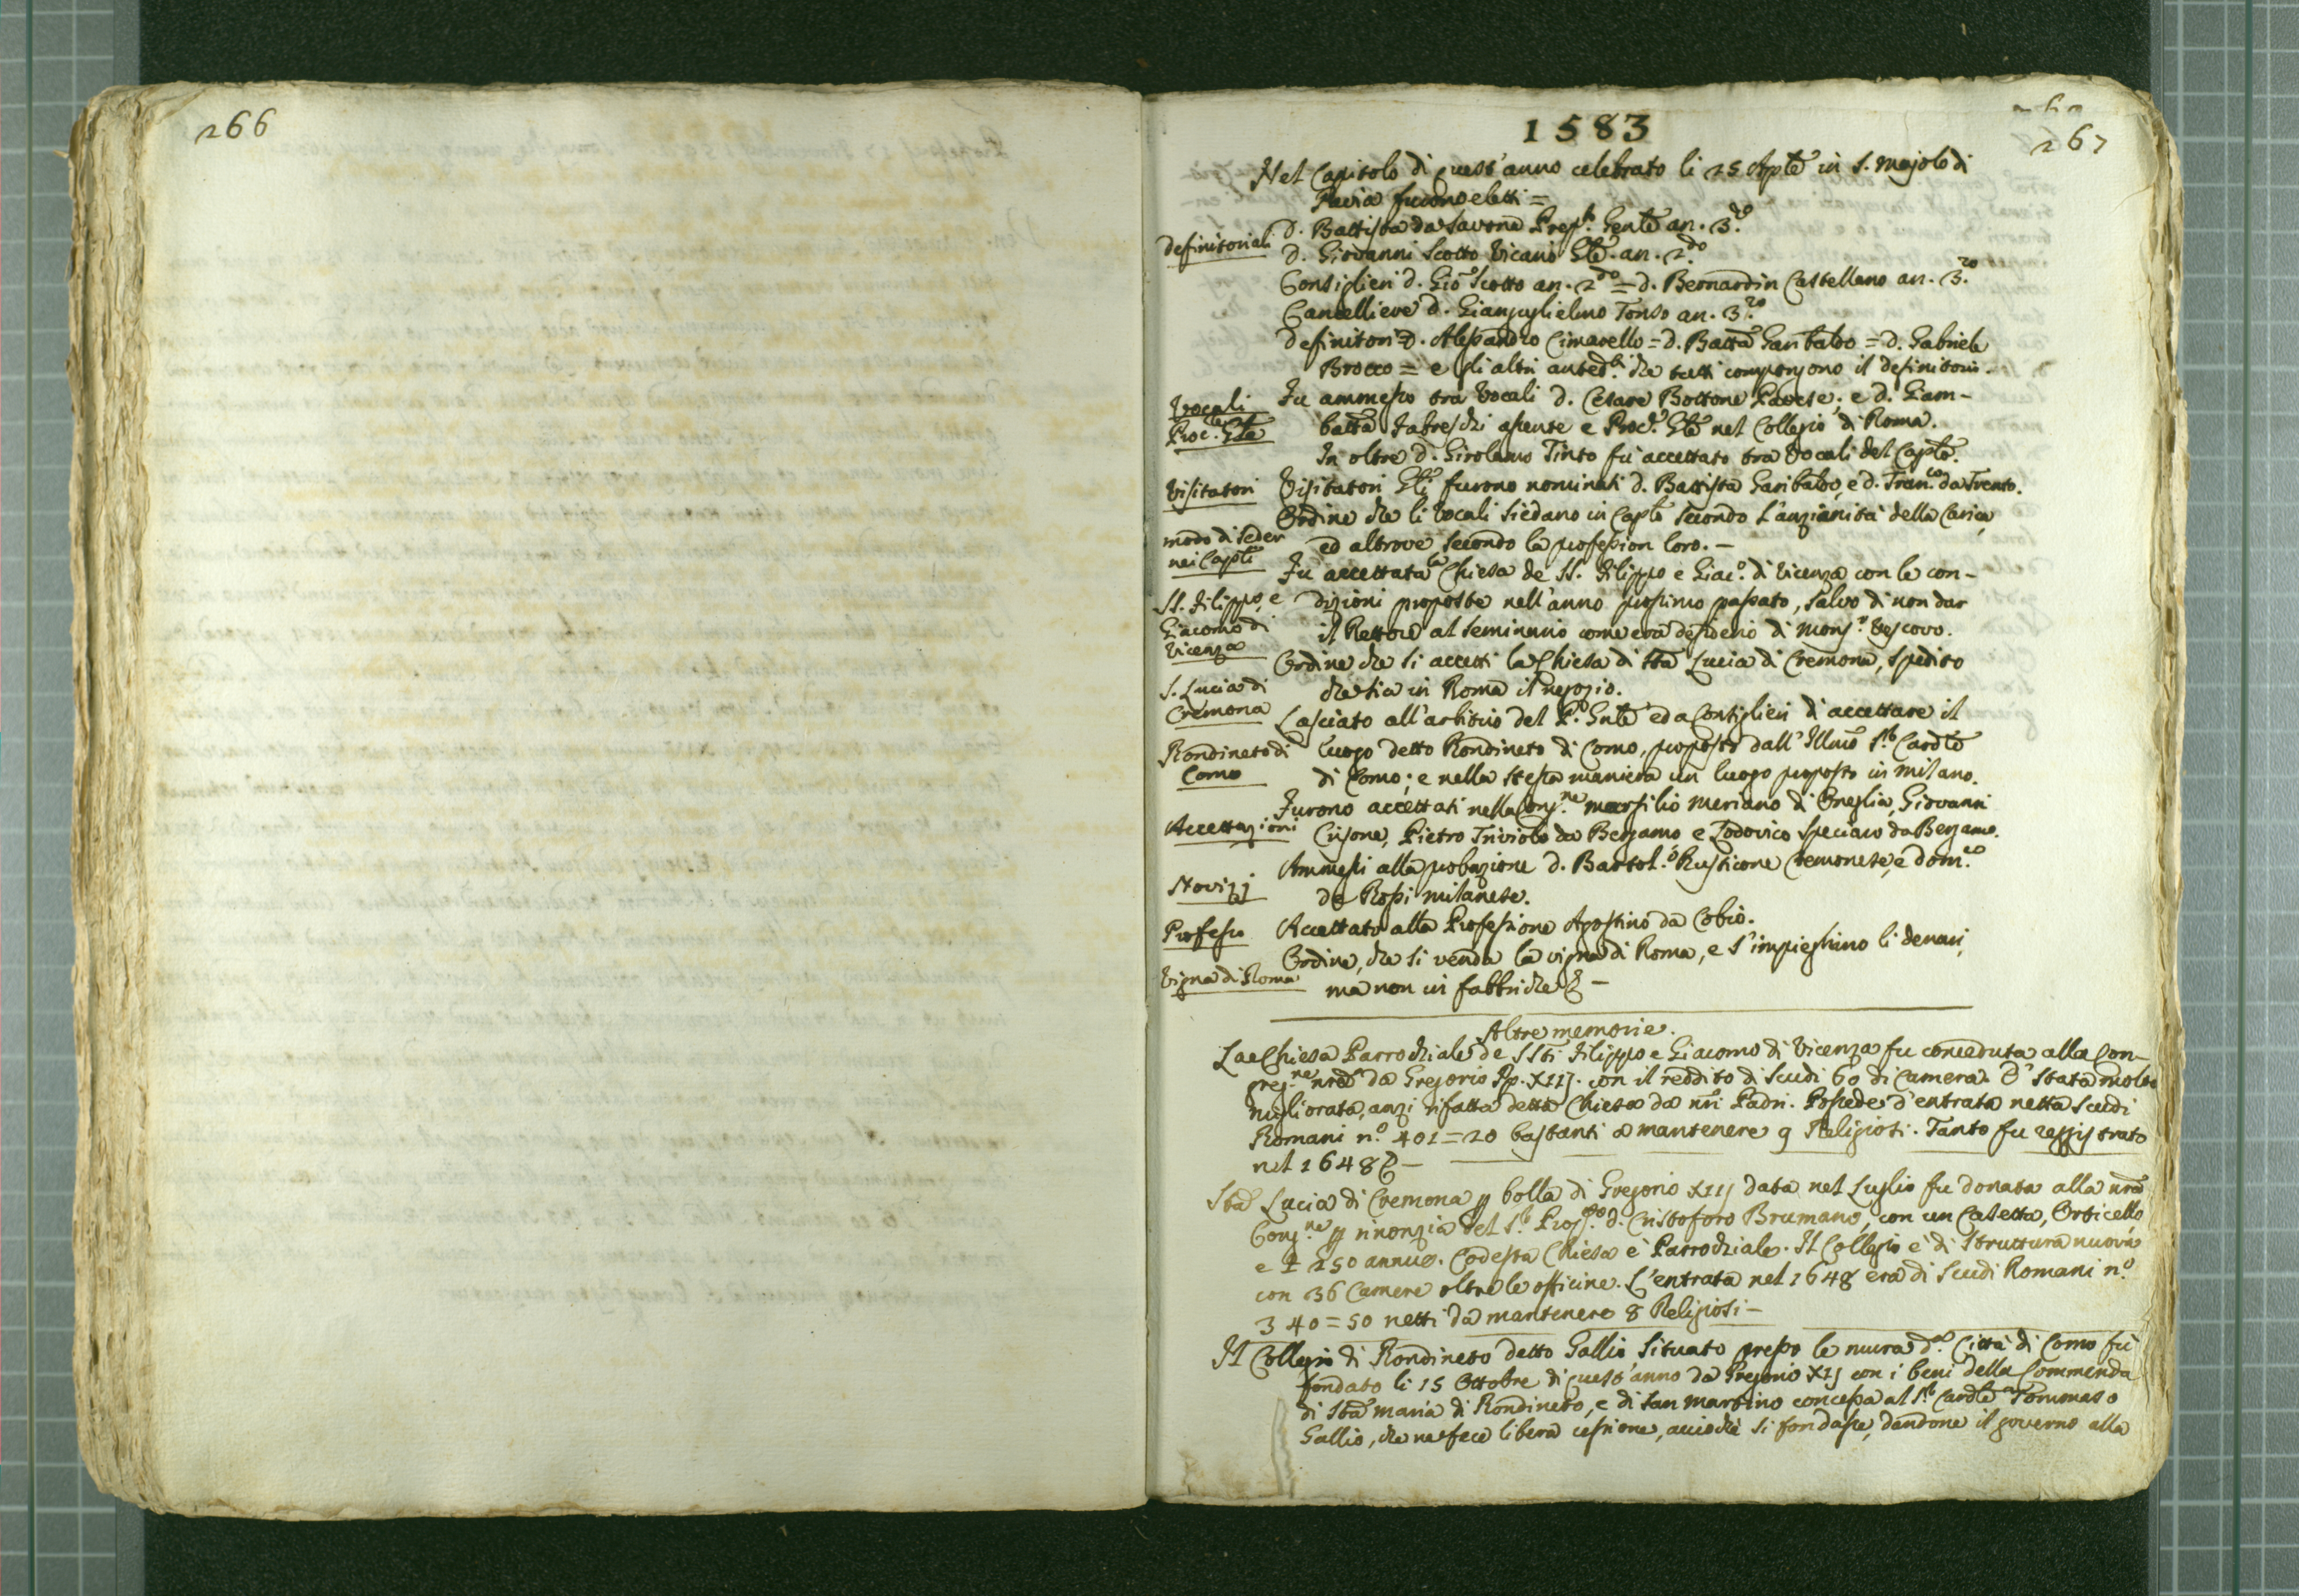 266
267
1583
Nel Capitolo di quest'anno celebrato li 25 Aple in S. Majolo di
Pavia furono eletti =
Definitoriali
D. Battista da Savona Prep.to Gente an. 3.zo
D. Giovanni Scotto Vicario Gle. an. 2.do
Consiglieri d. Gio Scotto an. 2.do = d. Bernardin Castellano an. 3.zo
Cancelliere d. Gianguglielmo Tonso an. 3.zo
Definitori = D. Alessandro Cimarello = d. Batta Garibaldo = d. Gabriele
Brocco = e gli altri anted.ti che tutti compongono il definitorio.
Vocali
Proc.re Gle
Fu ammesso tra Vocali d. Cesare Bottone Pavese; e d. Giam-
batta Fabreschi assente e Proc.re Gle nel Collegio di Roma.
In oltre d. Girolamo Tinto fu accettato tra Vocali del Caplo.
Visitatori
Visitatori Gli furono nominati d. Battista Garibaldo, e d. Fran.co da Trento.
modo di seder
nei Capli
Ordine che li vocali siedano in Caplo secondo l'anzianità della Carica,
ed altrove secondo la profession loro. -
SS. Filippo e
Giacomo di
Vicenza
Fu accettata la Chiesa de SS. Filippo e Giac.o di Vicenza con le con-
dizioni proposte nell'anno prossimo passato, salvo di non dar
il Rettore al seminario come era desiderio di Mons.r Vescovo.
S. Lucia di
Cremona
Ordine che si accetti la Chiesa di Sta Lucia di Cremona, spedito
che sia in Roma il negozio.
Rondineto di
Como
Lasciato all'arbitrio del P. Gnle ed a Consiglieri di accettare il
luogo detto Rondineto di Como, proposto dall'Illmo S.r Cardle
di Como; e nella stessa maniera un luogo proposto in Milano.
Accettazioni
Furono accettati nella Cong.ne Marsilio Meriano di Oneglia, Giovanni
Crisone, Pietro Triviolo da Bergamo e Lodovico Speciano da Bergamo.
Novizj
Ammessi alla probazione d. Bartol.o Rusticone Cremonese, e dom.co
de Rossi milanese.
Professo
Accettato alla Professione Agostino da Cobio.
Vigna di Roma
Ordine, che si venda la vigna di Roma, e s'impieghino li denari,
ma non in fabbriche &. -
Altre memorie.
La Chiesa Parrochiale de SSti Filippo e Giacomo di Vicenza fu conceduta alla Con-
greg.ne nra da Gregorio Pp. XIIJ. con il reddito di scudi 60 di camera. È stata molto
migliorata, anzi rifatta detta Chiesa da nri Padri. Possede d'entrata netta scudi
Romani n.o 401 = 20 bastanti a mantenere 9 Religiosi. Tanto fu reggistrato
nel 1648 &. -
Sta Lucia di Cremona p bolla di Gregorio XIIJ data nel Luglio fu donata alla nra
Cong.ne p rinonzia del S.r Prop.to d. Cristoforo Brumano, con un Casetta, Orticello,
e £ 250 annue. Codesta Chiesa è Parrochiale. Il Collegio è di struttura nuova
con 36 Camere oltre le officine. L'entrata nel 1648 era di scudi Romani n.o
340 = 50 netti da mantenere 8 Religiosi -
Il Collegio di Rondineto detto Gallio situato presso le mura d.a Città di Como fù
fondato li 15 Ottobre di quest'anno da Gregorio XIIJ con i beni della Commenda
di Sta Maria di Rondineto, e di San Martino concessa al S.r Cardle Tommaso
Gallio, che ne fece libera cessione, acciochè si fondasse, dandone il governo alla